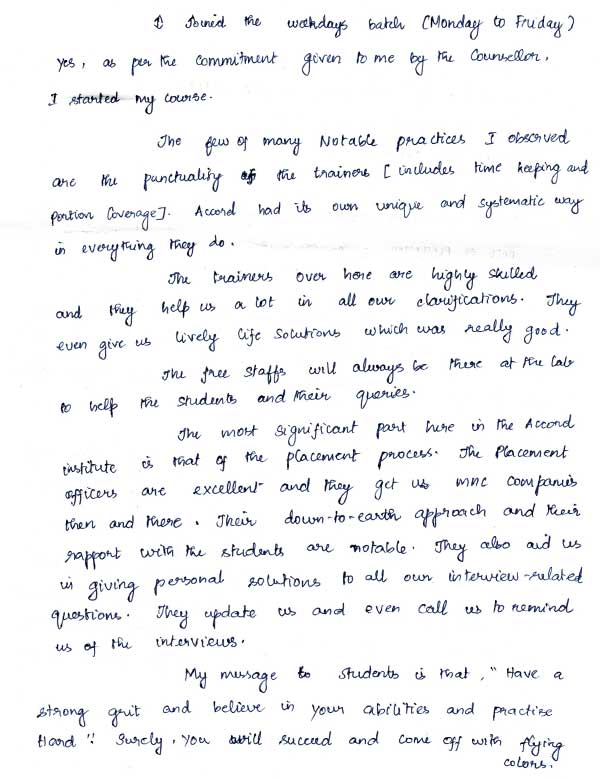 I Joined the weekdays batch (Monday to Friday)
yes, as per the commitment given to me by the Counsellor,
I started my course.
The few of many Notable practices I observed
are the punctuality of the trainers [includes time keeping and
portion Coverage]. Accord had its own unique and systematic way
in everything they do.
The trainers over here are highly skilled
and they help us a lot in all our clarifications. They
even give us lively life solutions which was really good.
The free staffs will always be there at the lab
to help the students and their queries.
The most significant part here in the Accord
institute is that of the placement process. The Placement
officers are excellent and they get us mnc companies
then and there. Their down-to-earth approach and their
rapport with the students are notable. They also aid us
in giving personal solutions to all our interview-related
questions. They update us and even call us to remind
us of the interviews.
My message to students is that, "Have a
strong grit and believe in your abilities and practise
Hard". Surely, you will succeed and come off with flying
colors.